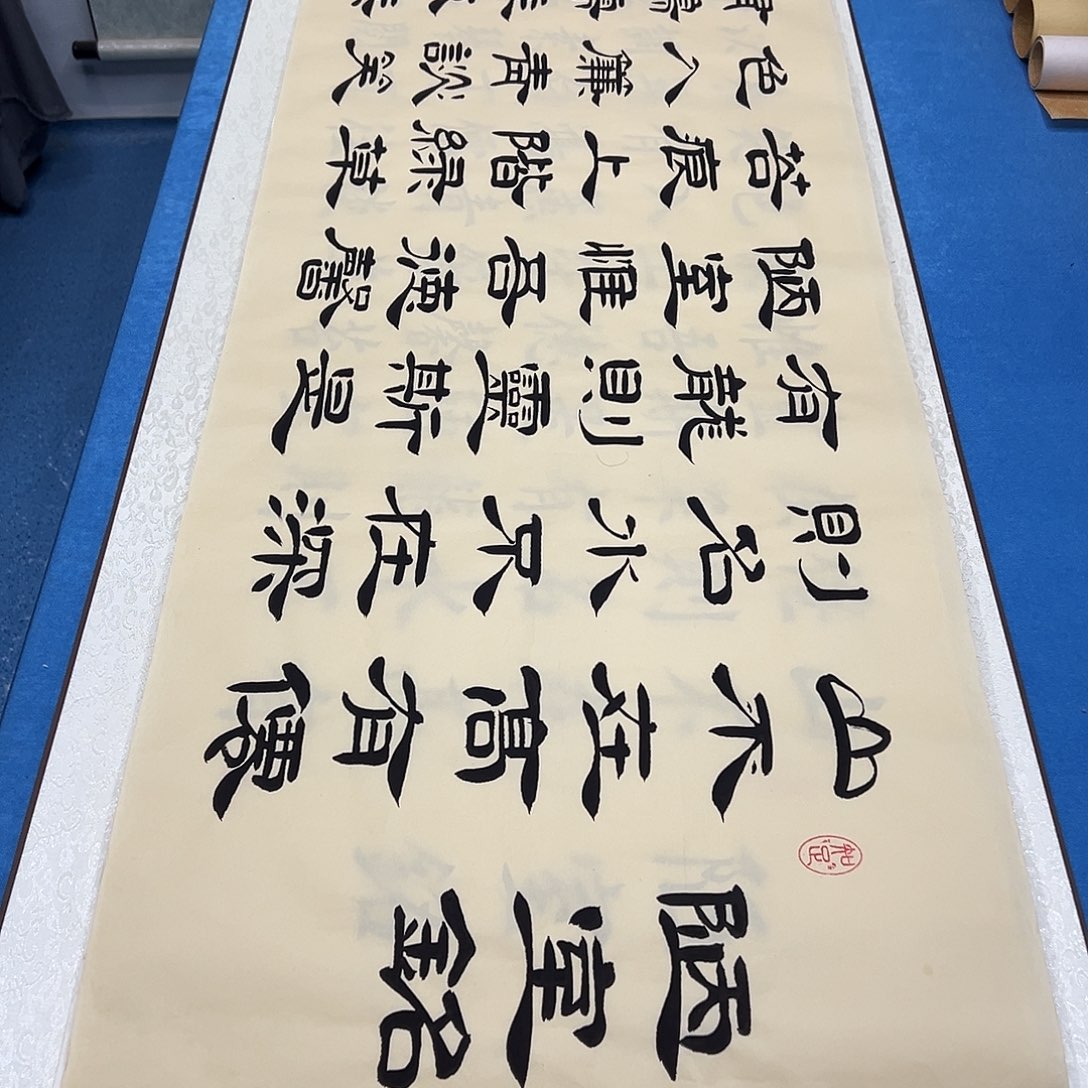 陋室銘
山不在高有僊
則名水不在深
有龍則靈斯是
陋室惟吾德馨
苔痕上階緑草
色入簾青談笑